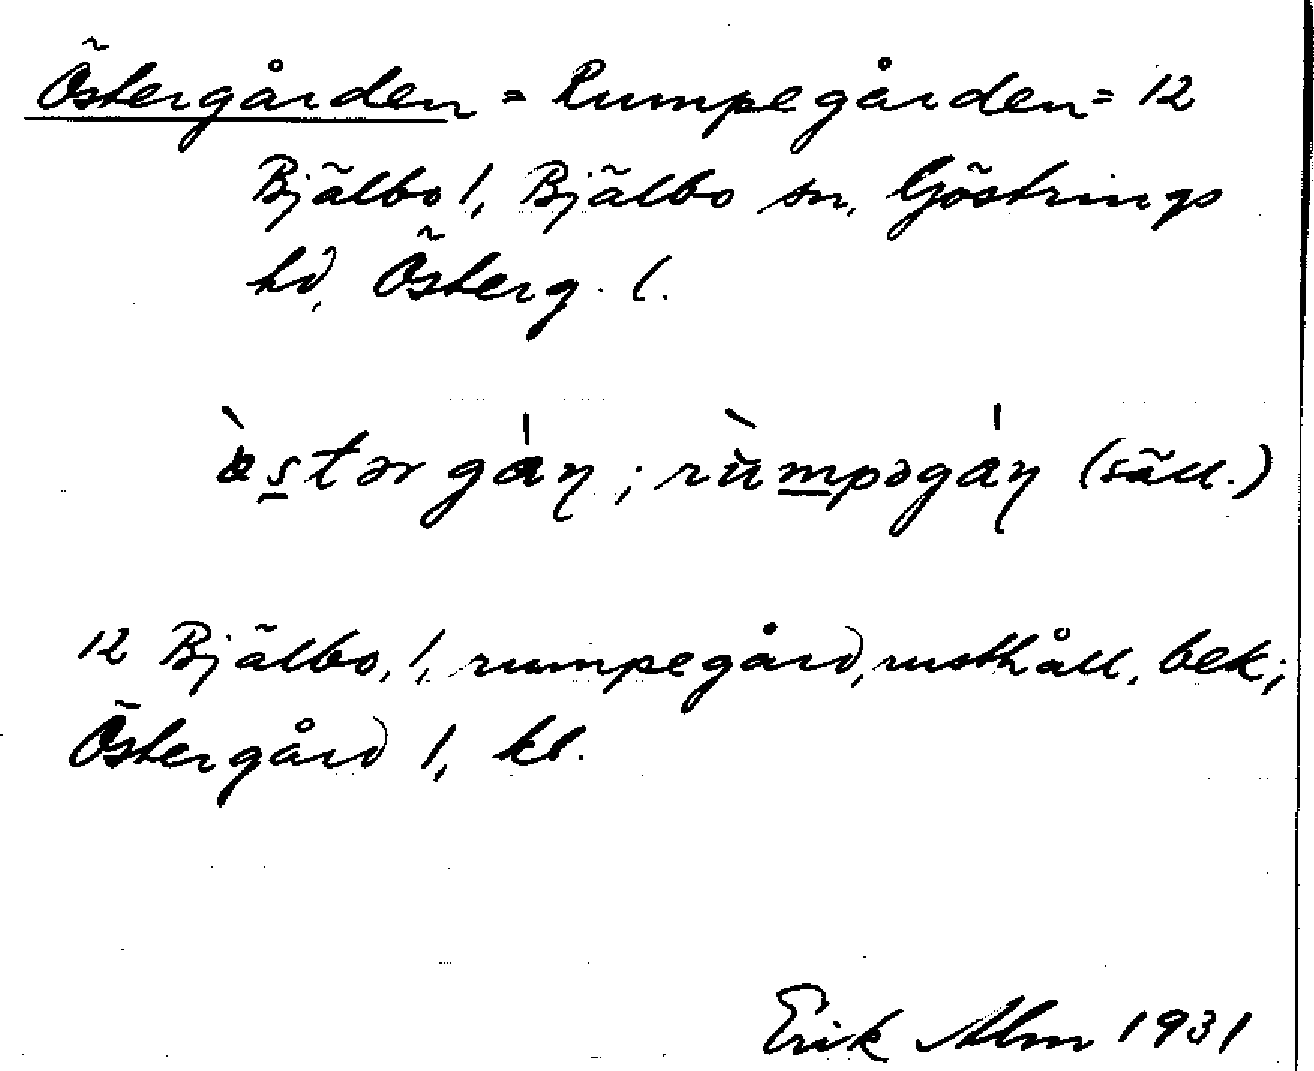 Östergården = Rumpegården = 12
Bjälbo 1, Bjälbo sn, Göstrings
hd, Österg. l.
rùmpəgáɳ (säll.)
12 Bjälbo, 1, rumpegård, rusthåll, bek;
Östergård 1, kl.
Erik Alm 1931